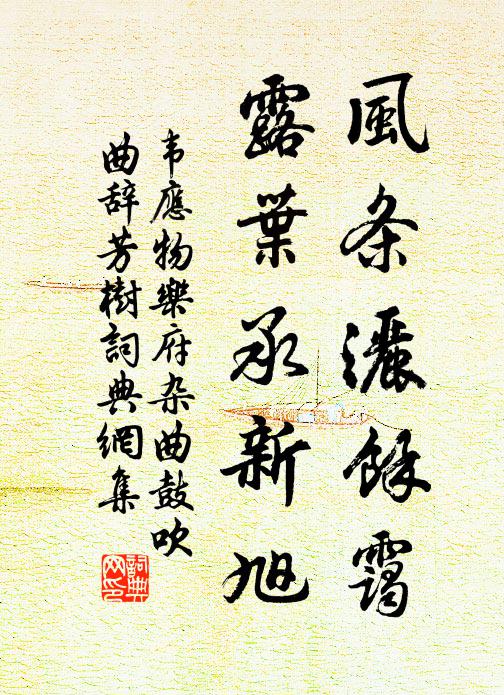 風条灑餘靄
露葉承新旭
韦應物樂府杂曲鼓吹
曲辞芳樹詞典網集
詞典网印